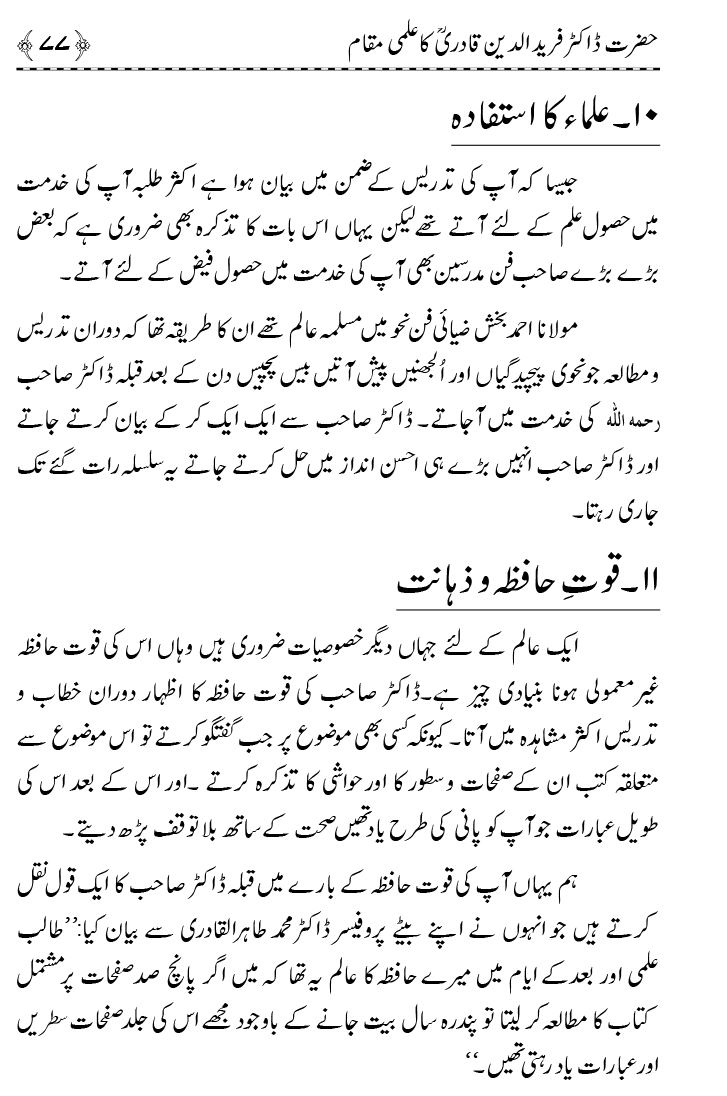 حضرت ڈاکٹر فرید الدین قادریؒ کا علمی مقام ﴿۷۷﴾
۱۰۔ علماء کا استفادہ
جیسا کہ آپ کی تدریس کے ضمن میں بیان ہوا ہے اکثر طلبہ آپ کی خدمت
میں حصول علم کے لئے آتے تھے لیکن یہاں اس بات کا تذکرہ بھی ضروری ہے کہ بعض
بڑے بڑے صاحب فن مدرسین بھی آپ کی خدمت میں حصول فیض کے لئے آتے۔
مولانا احمد بخش ضیائی فن نحو میں مسلمہ عالم تھے ان کا طریقہ تھا کہ دوران تدریس
و مطالعہ جو نحوی پیچیدگیاں اور اُلجھنیں پیش آتیں بیس پچیس دن کے بعد قبلہ ڈاکٹر صاحب
رحمه الله کی خدمت میں آ جاتے۔ ڈاکٹر صاحب سے ایک ایک کر کے بیان کرتے جاتے
اور ڈاکٹر صاحب انہیں بڑے ہی احسن انداز میں حل کرتے جاتے یہ سلسلہ رات گئے تک
جاری رہتا۔
۱۱۔ قوتِ حافظہ و ذہانت
ایک عالم کے لئے جہاں دیگر خصوصیات ضروری ہیں وہاں اس کی قوت حافظہ
غیر معمولی ہونا بنیادی چیز ہے۔ ڈاکٹر صاحب کی قوت حافظہ کا اظہار دوران خطاب و
تدریس اکثر مشاہدہ میں آتا۔ کیونکہ کسی بھی موضوع پر جب گفتگو کرتے تو اس موضوع سے
متعلقہ کتب ان کے صفحات و سطور کا اور حواشی کا تذکرہ کرتے ۔ اور اس کے بعد اس کی
طویل عبارات جو آپ کو پانی کی طرح یاد تھیں صحت کے ساتھ بلا توقف پڑھ دیتے۔
ہم یہاں آپ کی قوت حافظہ کے بارے میں قبلہ ڈاکٹر صاحب کا ایک قول نقل
کرتے ہیں جو انہوں نے اپنے بیٹے پروفیسر ڈاکٹر محمد طاہر القادری سے بیان کیا: ’’طالب
علمی اور بعد کے ایام میں میرے حافظہ کا عالم یہ تھا کہ میں اگر پانچ صد صفحات پر مشتمل
کتاب کا مطالعہ کر لیتا تو پندرہ سال بیت جانے کے باوجود مجھے اس کی جلد صفحات سطریں
اور عبارات یاد رہتی تھیں۔‘‘